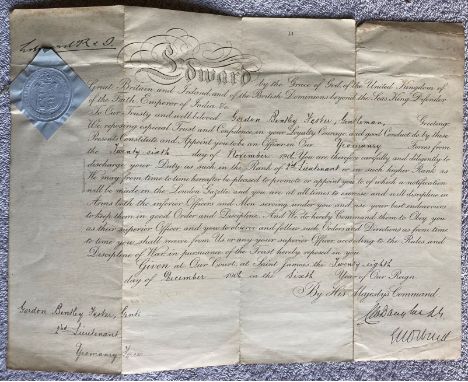 Edward R & I
Edward by the Grace of God, of the United Kingdom of
Great Britain and Ireland and of the British Dominions beyond the Seas King Defender
of the Faith, Emperor of India &c.
To Our Trusty and well beloved Gordon Bentley Foster, Gentleman, Greeting
We reposing especial Trust and Confidence in your Loyalty Courage, and good Conduct do by these
Presents Constitute and Appoint you to be an Officer in Our Yeomanry Forces from
the Twenty sixth day of November 1906. You are therefore carefully and diligently to
discharge your Duty as such in the Rank of 2nd Lieutenant or in such higher Rank as
We may from time to time hereafter be pleased to promote or appoint you to of which a notification
will be made in the London Gazette and you are at all times to exercise and well discipline in
Arms both the inferior Officers and Men serving under you and use your best endeavours
to keep them in good Order and Discipline. And We do hereby Command them to Obey you
as their superior Officer and you to observe and follow such Orders and Directions as from time
to time you shall receive from Us or any your superior Officer according to the Rules and
Discipline of War in pursuance of the Trust hereby reposed in you
Given at Our Court, at Saint James's the Twenty eighth
day of December 1906 in the Sixth Year of Our Reign
By His Majesty's Command
Gordon Bentley Foster, Gent:
2nd Lieutenant
Yeomanry Forces